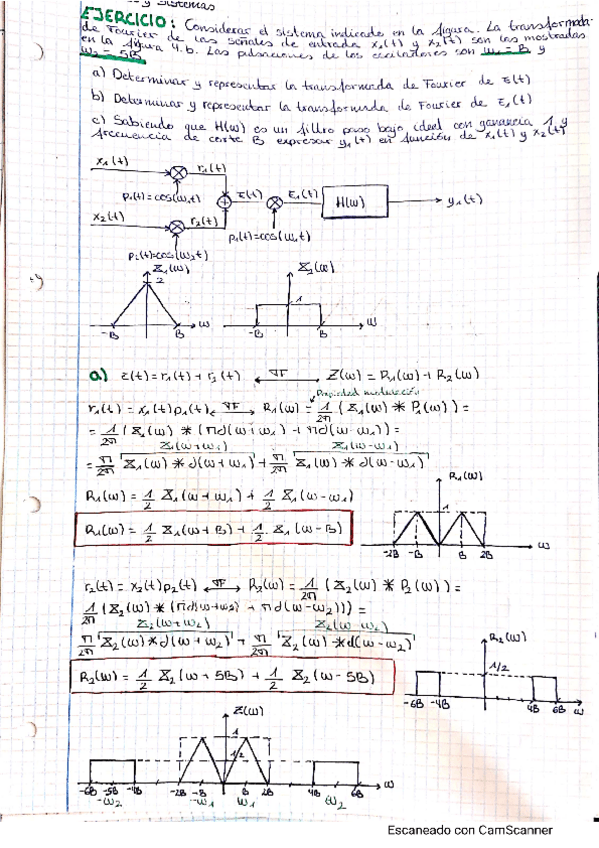 y Sistemas
EJERCICIO: Considerar el sistema indicado en la figura. La transformada
de Fourier de las señales de entrada x₁(t) y x₂(t) son las mostradas
en la figura 4.b. Las pulsaciones de los osciladores son ω₁ = B y
ω₂ = 5B.
a) Determinar y representar la transformada de Fourier de z(t)
b) Determinar y representar la transformada de Fourier de z₁(t)
c) Sabiendo que H(ω) es un filtro paso bajo ideal con ganancia 1 y
frecuencia de corte B expresar y₁(t) en función de x₁(t) y x₂(t)
x₁(t) r₁(t)
p₁(t)=cos(ω₁t) z(t) z₁(t) H(ω) y₁(t)
x₂(t) r₂(t) p₁(t)=cos(ω₁t)
p₂(t)=cos(ω₂t)
X₁(ω) X₂(ω)
2 1
-B B ω -B B ω
a) z(t) = r₁(t) + r₂(t) ⟷ TF Z(ω) = R₁(ω) + R₂(ω)
Propiedad modulación
r₁(t) = x₁(t)p₁(t) ⟷ TF R₁(ω) = 1/2π (X₁(ω) * P₁(ω)) =
= 1/2π (X₁(ω) * (πδ(ω+ω₁) + πδ(ω-ω₁)) =
X₁(ω+ω₁) X₁(ω-ω₁)
= π/2π X₁(ω) * δ(ω+ω₁) + π/2π X₁(ω) * δ(ω-ω₁)
R₁(ω) = 1/2 X₁(ω+ω₁) + 1/2 X₁(ω-ω₁)
R₁(ω) = 1/2 X₁(ω+B) + 1/2 X₁(ω-B)
R₁(ω)
1
-2B -B B 2B ω
r₂(t) = x₂(t)p₂(t) ⟷ TF R₂(ω) = 1/2π (X₂(ω) * P₂(ω)) =
1/2π (X₂(ω) * (πδ(ω+ω₂) + πδ(ω-ω₂))) =
X₂(ω+ω₂) X₂(ω-ω₂)
π/2π X₂(ω) * δ(ω+ω₂) + π/2π X₂(ω) * δ(ω-ω₂)
R₂(ω) = 1/2 X₂(ω+5B) + 1/2 X₂(ω-5B)
R₂(ω)
1/2
-6B -4B 4B 6B ω
Z(ω)
1
1/2
-6B -5B -4B -2B -B B 2B 4B 6B ω
-ω₂ -ω₁ ω₁ ω₂
Escaneado con CamScanner